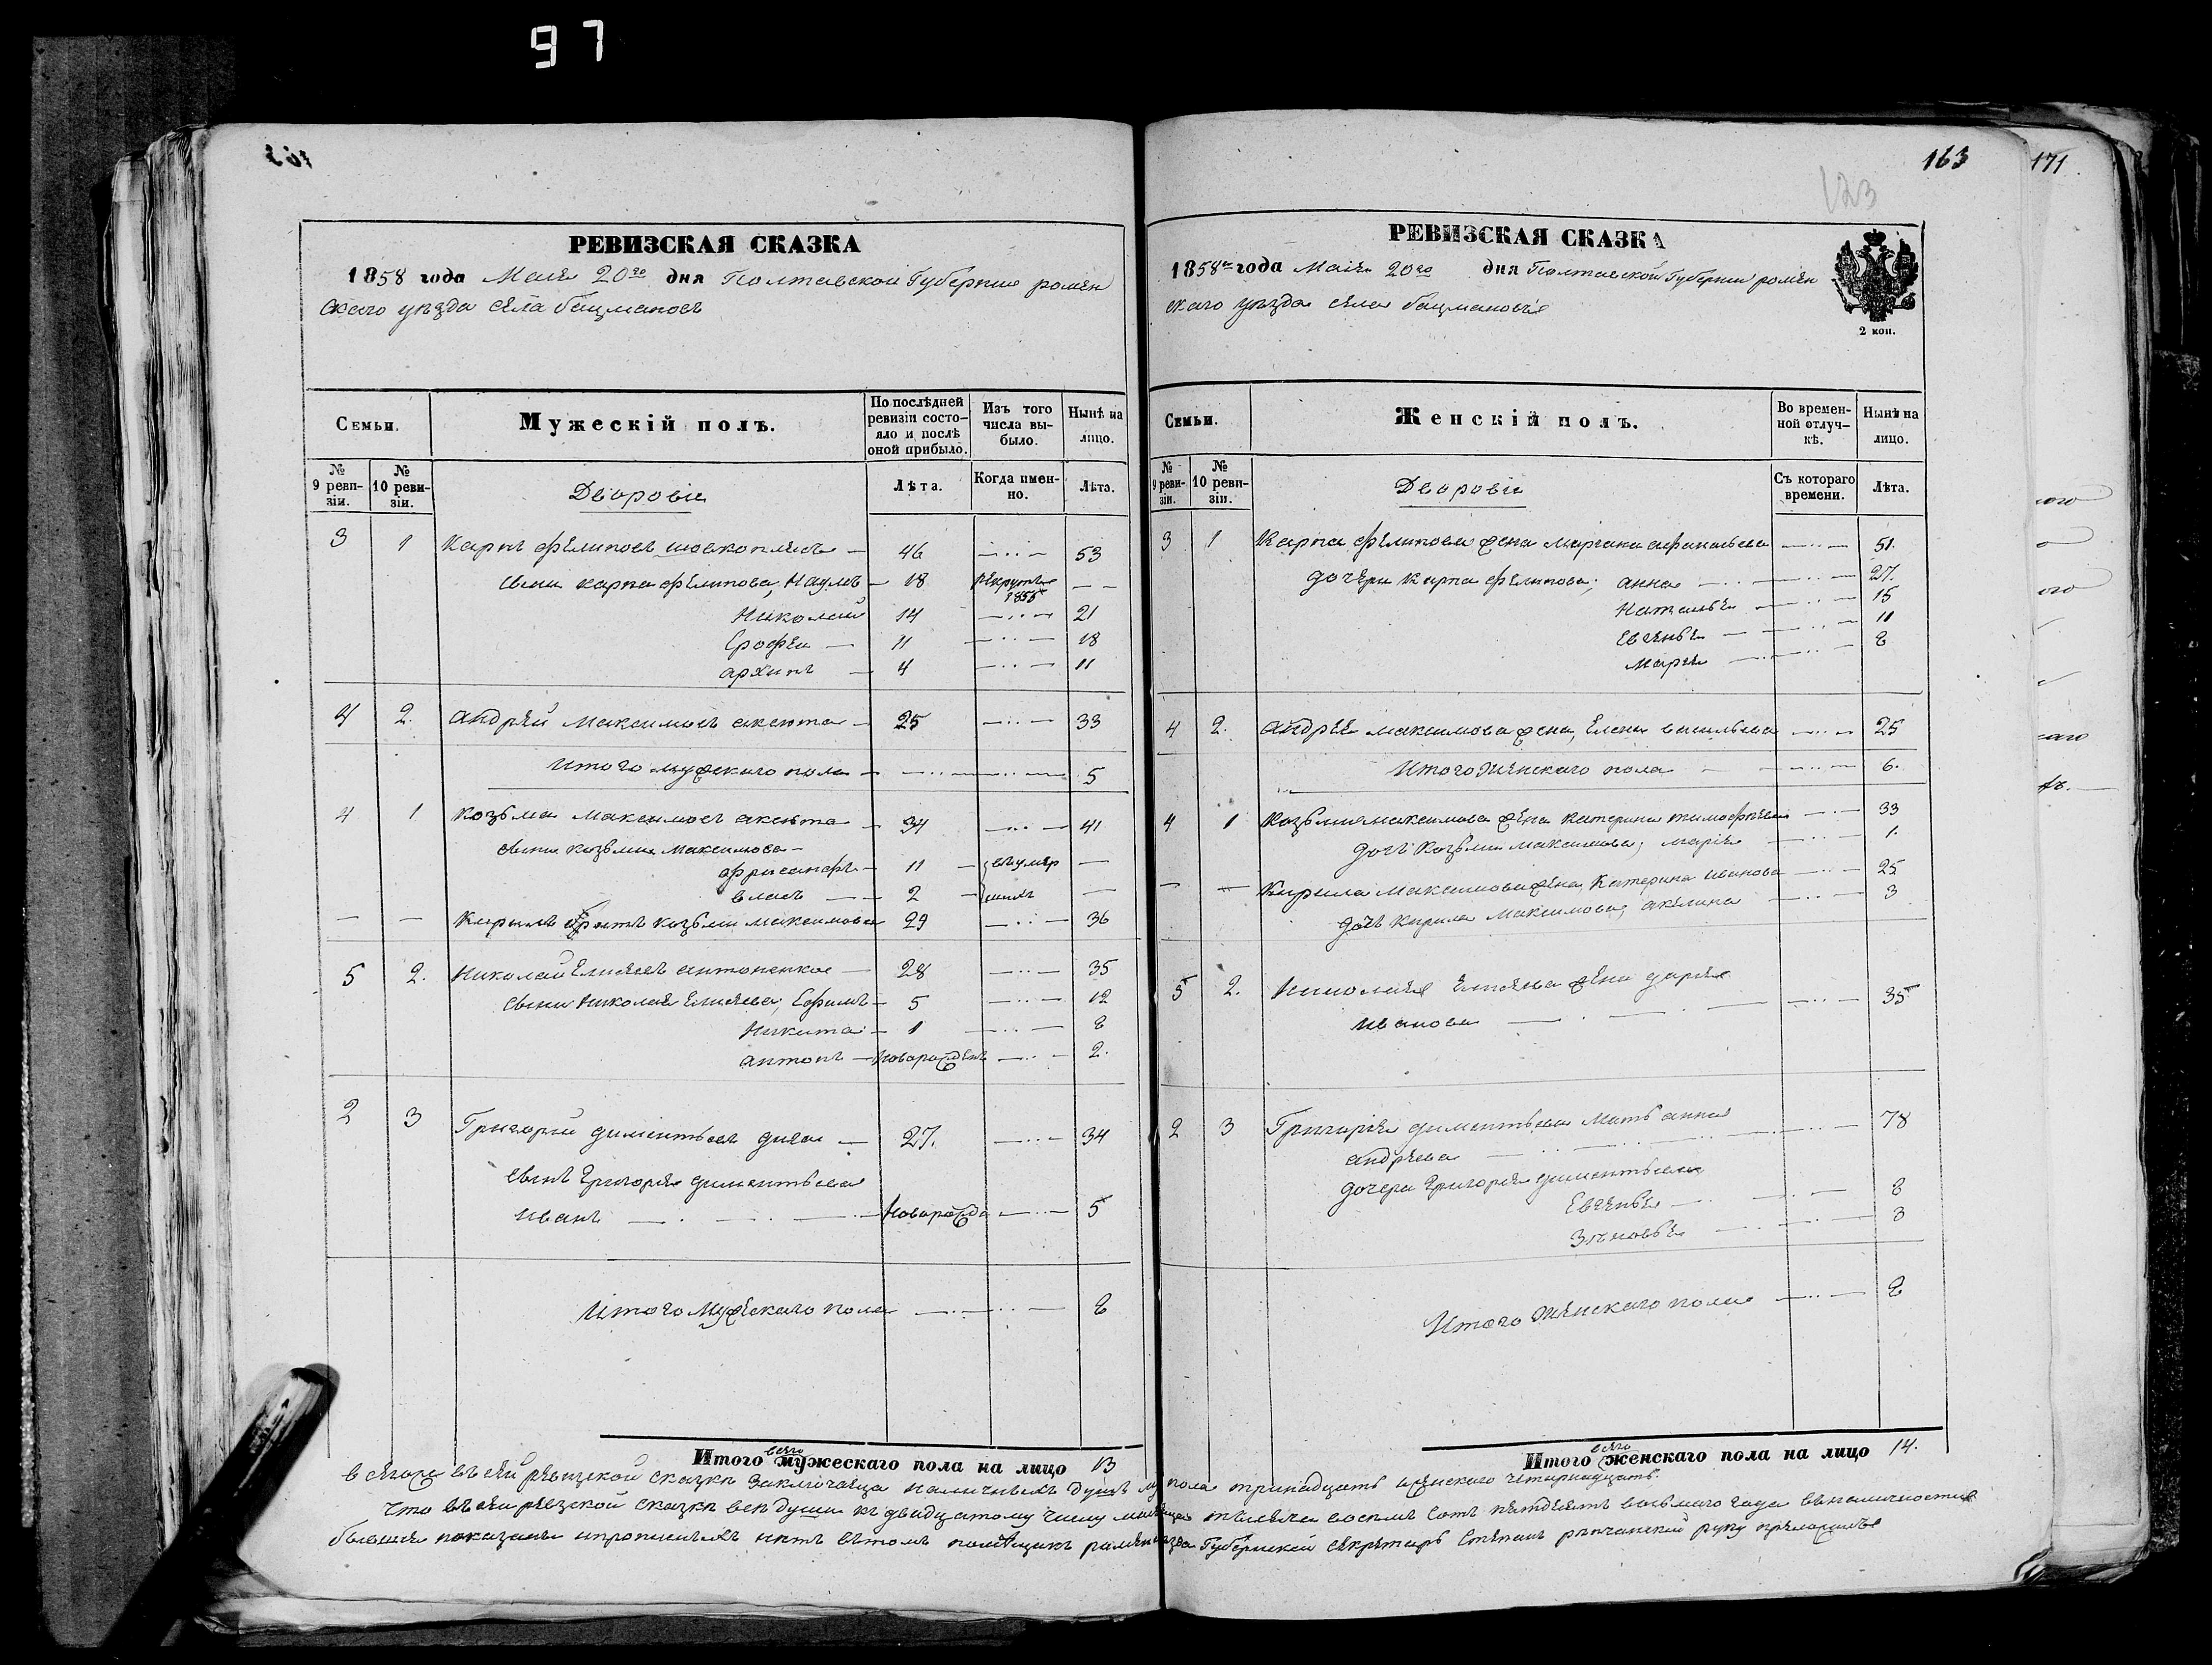 97
163
171
123
РЕВИЗСКАЯ СКАЗКА
1858 года Мая 20го дня Полтавской Губернии ромен
скаго уезда села бацманов
Семьи.
Мужескій полъ.
По послѣдней ревизіи состояло и послѣ оной прибыло.
Изъ того числа выбыло.
Нынѣ на лицо.
№ 9 ревизіи.
№ 10 ревизіи.
Дворовіи
Лѣта.
Когда именно.
Лѣта.
3 1 Карпъ Филиповъ — 46 — 53
сыни карпа филипова, Наумъ — 18 рекрутъ 1855 — —
Николай 14 — 21
Ерофеи — 11 — 18
архипъ — 4 — 11
4 2. андрей максимовъ аксюта — 25 — 33
Итого мужскаго пола — — 5
4 1 козьма максимовъ аксюта — 34 — 41
сыни козьми максимова —
11 — умер —
власъ — 2 — —
— — Кирилъ братъ козьми максимова 29 — 36
5 2. Николай Елисеевъ антоненко — 28 — 35
сыни Николая Елисеева, Ефимъ — 5 — 12
Никита — 1 — 8
антонъ — новорожденъ — 2.
2 3 Григорий диментьевъ — 27. — 34
сынъ Григория диментьева
иванъ — новорожде — 5
Итого мужскаго пола — 8
Итого всего мужескаго пола на лицо 13
РЕВИЗСКАЯ СКАЗКА
1858го года Мая 20го дня Полтавской Губернии ромен
скаго уезда села бацмановъ
2 коп.
Семьи.
Женскій полъ.
Во временной отлучкѣ.
Нынѣ на лицо.
№ 9 ревизіи.
№ 10 ревизіи.
Дворовіи
Съ котораго времени.
Лѣта.
3 1 Карпа филипова жена — 51.
дочери карпа филипова; анна — 27.
Наталья — 15
Евгенья — 11
Марья — 8
4 2. андрея максимова жена, Елена васильева — 25
Итого женскаго пола — 6.
4 1 Козьми максимова жена катерина тимофеева — 33
дочь козьми максимова; мария — 1.
— — Кирила максимова жена, катерина иванова — 25
дочь кирила максимова, акелина — 3
5 2. Николая Елисеева жена дарья
иванова — 35
2 3 Григория диментьева мать анна
андреева — 78
дочери Григория диментьева
Евгенья — 8
Зиновья — 3
Итого женскаго пола — 8
Итого всего женскаго пола на лицо 14.
в сей ревизской сказке заключаеца наличныхъ душъ м пола тринадцать женскаго четирнадцать.
Что въ сеи ревзской сказке все души къ двадцатому числу маия месяца тысяча восемъ сотъ пятдесятъ восьмаго года въ наличности
бывшия показаны и прописныхъ нетъ въ томъ помещикъ Губернский секретарь степанъ руку приложилъ